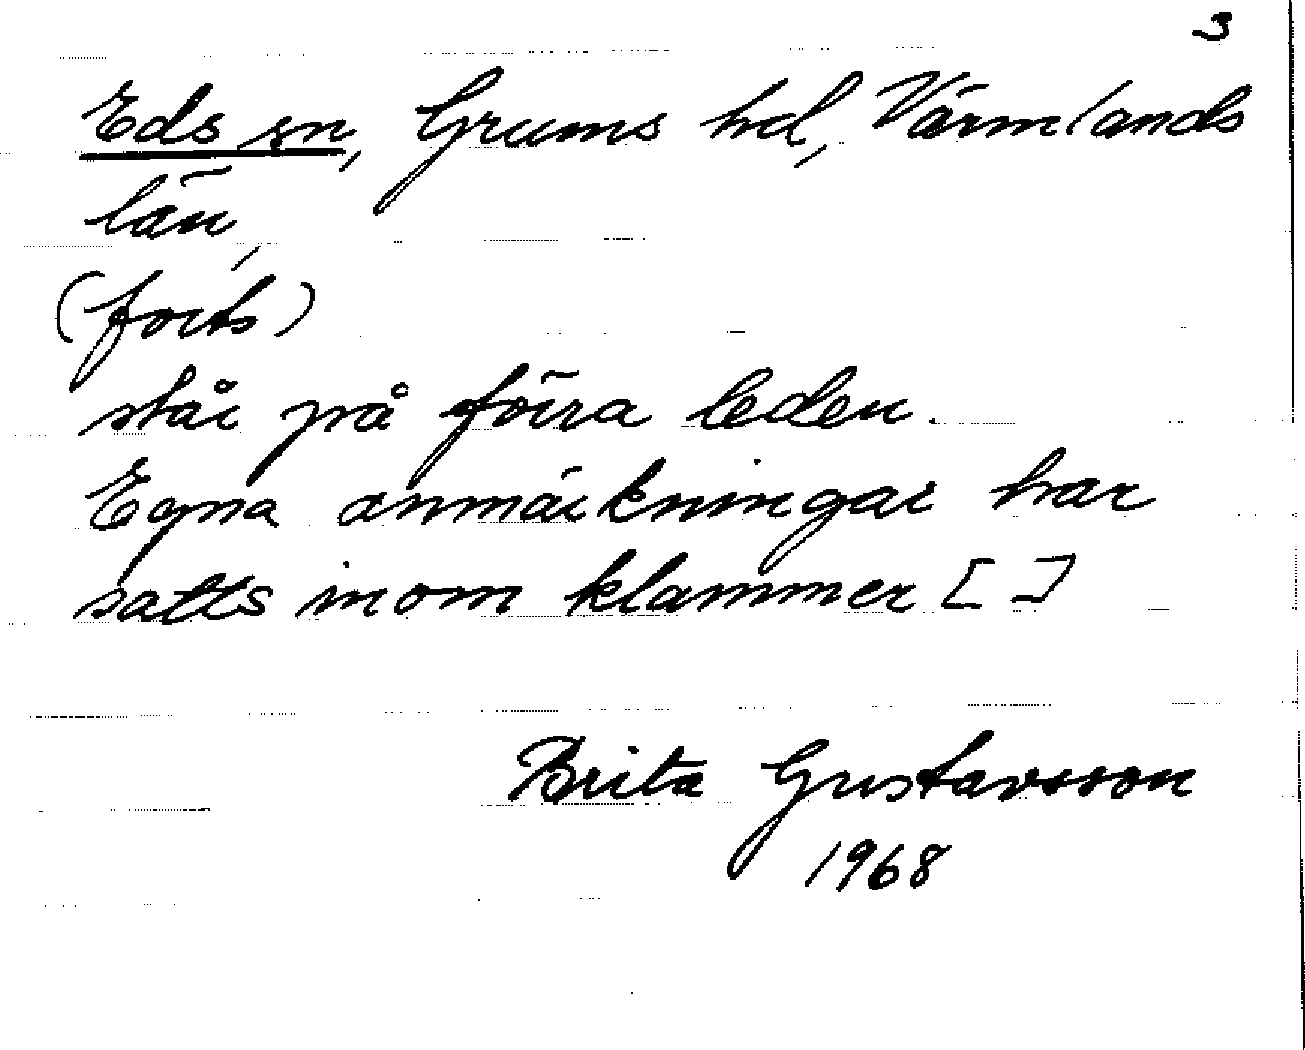 3
Eds sn, Grums hd, Värmlands
län,
(forts)
står på förra leden.
Egna anmärkningar har
satts inom klammer [ ]
Brita Gustavsson
1968